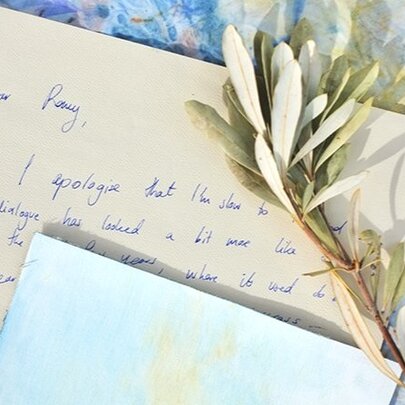 Remy,
I apologise that I'm slow to
dialogue has looked a bit more like
the years, where it used to